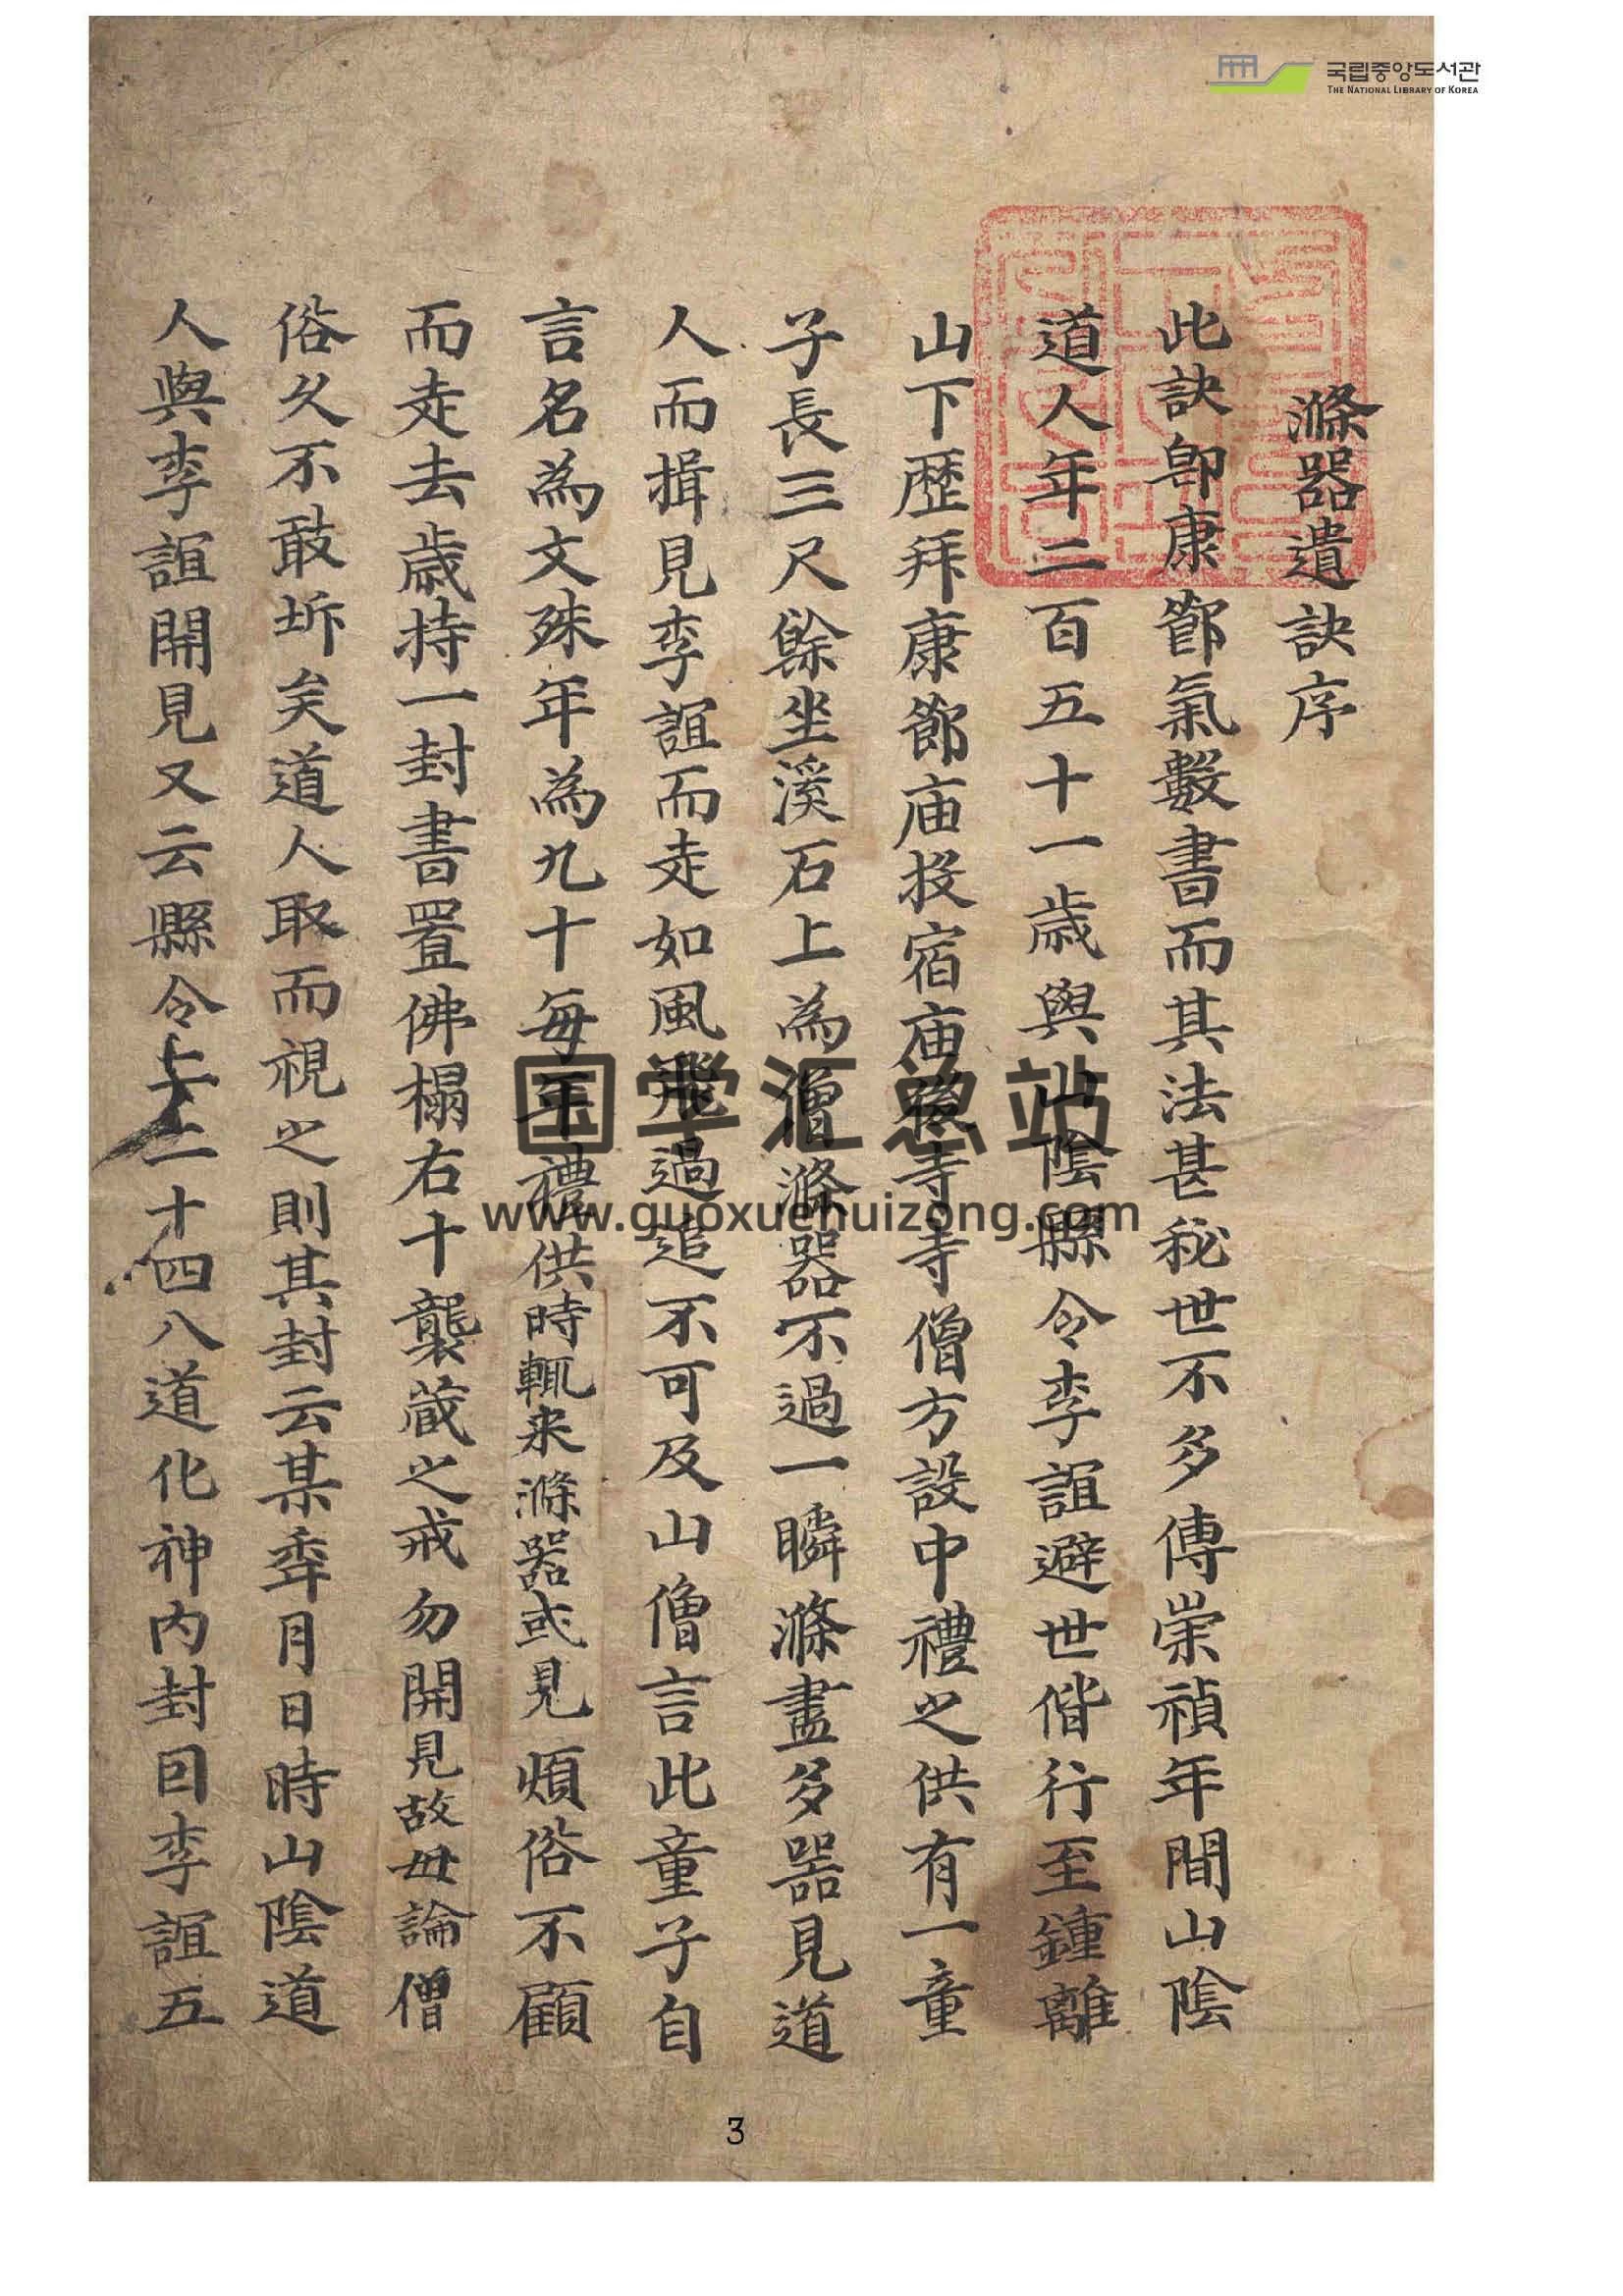 국립중앙도서관
THE NATIONAL LIBRARY OF KOREA
滌器遺訣序
此訣卽康節氣數書而其法甚秘世不多傳崇禎年間山陰
道人年二百五十一歲與山陰縣令李誼避世偕行至鍾離
山下歷拜康節庙投宿庙後寺寺僧方設中禮之供有一童
子長三尺餘坐溪石上為僧滌器不過一瞬滌盡多器見道
人而揖見李誼而走如風飛過追不可及山僧言此童子自
言名為文殊年為九十每年禮供時輒来滌器或見煩俗不顧
而走去歲持一封書置佛榻右十襲藏之戒勿開見故毋論僧
俗久不敢坼矣道人取而視之則其封云某年月日時山陰道
人與李誼開見又云縣令二十四八道化神內封曰李誼五
国学汇总站
www.guoxuehuizong.com
3